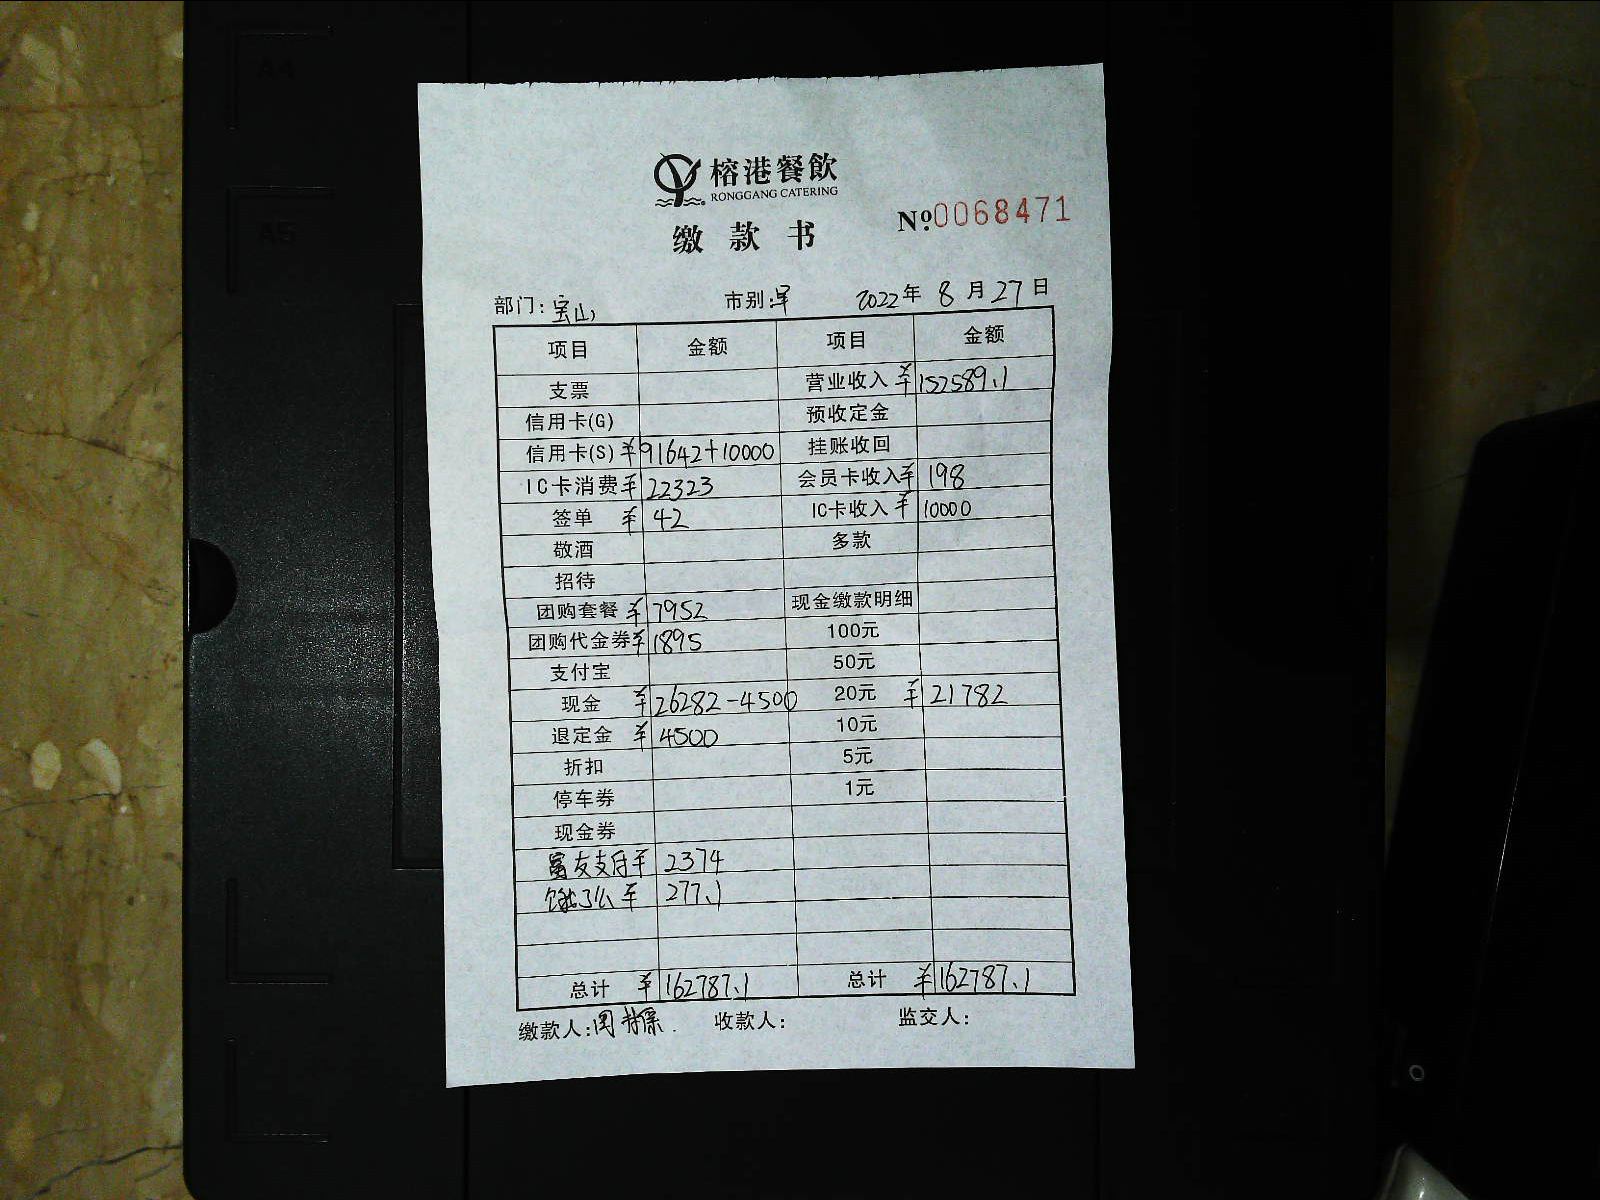 A4
A5
榕港餐飲
RONGGANG CATERING
缴款书
№0068471
部门:宝山 市别:早 2022年8月27日
项目 金额 项目 金额
支票 营业收入 ¥152589.1
信用卡(G) 预收定金
信用卡(S) ¥91642+10000 挂账收回
IC卡消费 ¥22323 会员卡收入 ¥198
签单 ¥42 IC卡收入 ¥10000
敬酒 多款
招待
团购套餐 ¥7952 现金缴款明细
团购代金券 ¥1895 100元
支付宝 50元
现金 ¥26282-4500 20元 ¥21782
退定金 ¥4500 10元
折扣 5元
停车券 1元
现金券
富友支付 ¥2374
饿了么 ¥277.1
总计 ¥162787.1 总计 ¥162787.1
缴款人:周 收款人: 监交人: